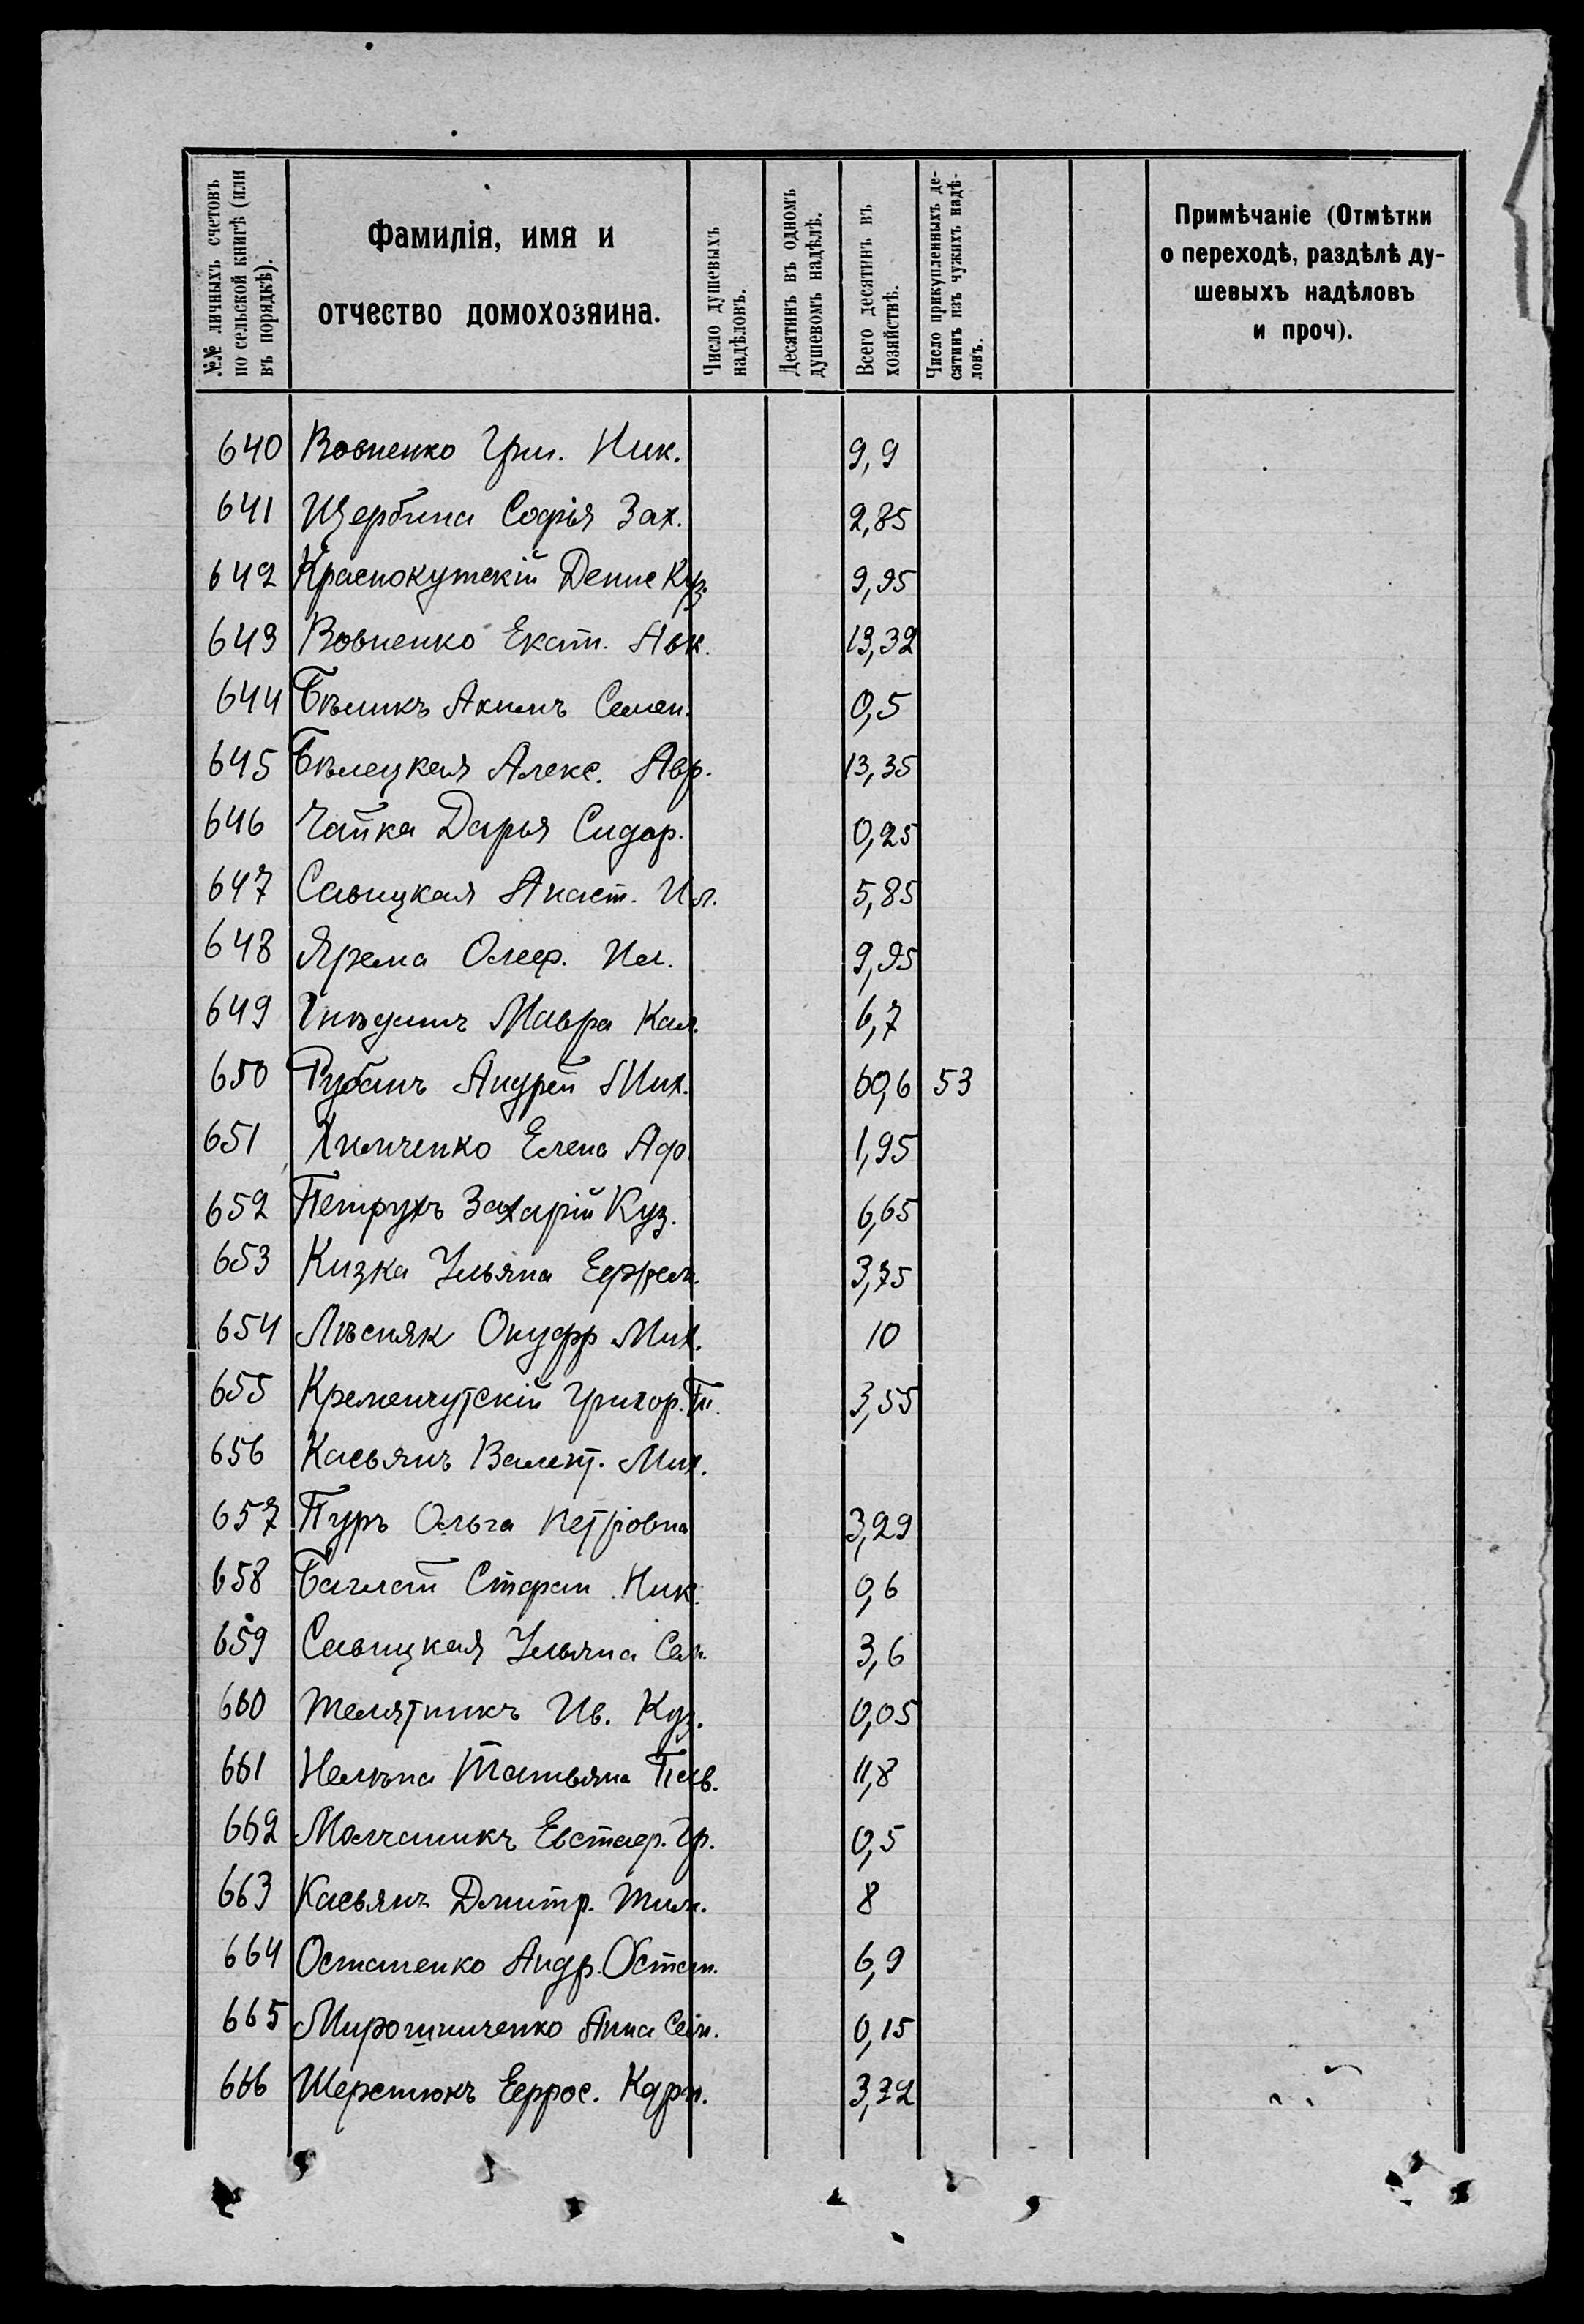 №№ личныхъ счетовъ по сельской книгѣ (или въ порядкѣ).
Фамилія, имя и отчество домохозяина.
Число душевыхъ надѣловъ.
Десятинъ въ одномъ душевомъ надѣлѣ.
Всего десятинъ въ хозяйствѣ.
Число прикупленныхъ десятинъ изъ чужихъ надѣловъ.
Примѣчаніе (Отмѣтки о переходѣ, раздѣлѣ душевыхъ надѣловъ и проч).
640 Вовненко Гри. Ник. 9,9
641 Щербина Софія Зах. 2,85
642 Краснокутскій Денис Куз. 9,95
643 Вовненко Екат. Авк. 13,32
644 Бѣликъ Акимъ Семен. 0,5
645 Бѣлецкая Алекс. Авр. 13,35
646 Чайка Дарья Сидор. 0,25
647 Савицкая Анаст. Ил. 5,85
648 Ярема Олеф. 9,95
649 Мавра 6,7
650 Рубанъ Андрей Мих. 60,6 53
651 Химченко Елена 1,95
652 Петрухъ Захарій Куз. 6,65
653 Кизка Ульяна Ефрем. 3,35
654 Лѣсняк Онуфр Мих. 10
655 Кременчутскій Григор. 3,55
656 Касьянъ Валент. Мих.
657 Пуръ Ольга Петровна 3,29
658 Баглай Стефан Ник. 0,6
659 Савицкая Ульяна Сем. 3,6
660 Телятникъ Ив. Куз. 0,05
661 Татьяна Пав. 11,8
662 Молчаникъ Евстаф. Гр. 0,5
663 Касьянъ Дмитр. Тим. 8
664 Остапенко Андр. Остап. 6,9
665 Мирошниченко Анна Сем. 0,15
666 Шерстюкъ Ефрос. Карп. 3,32